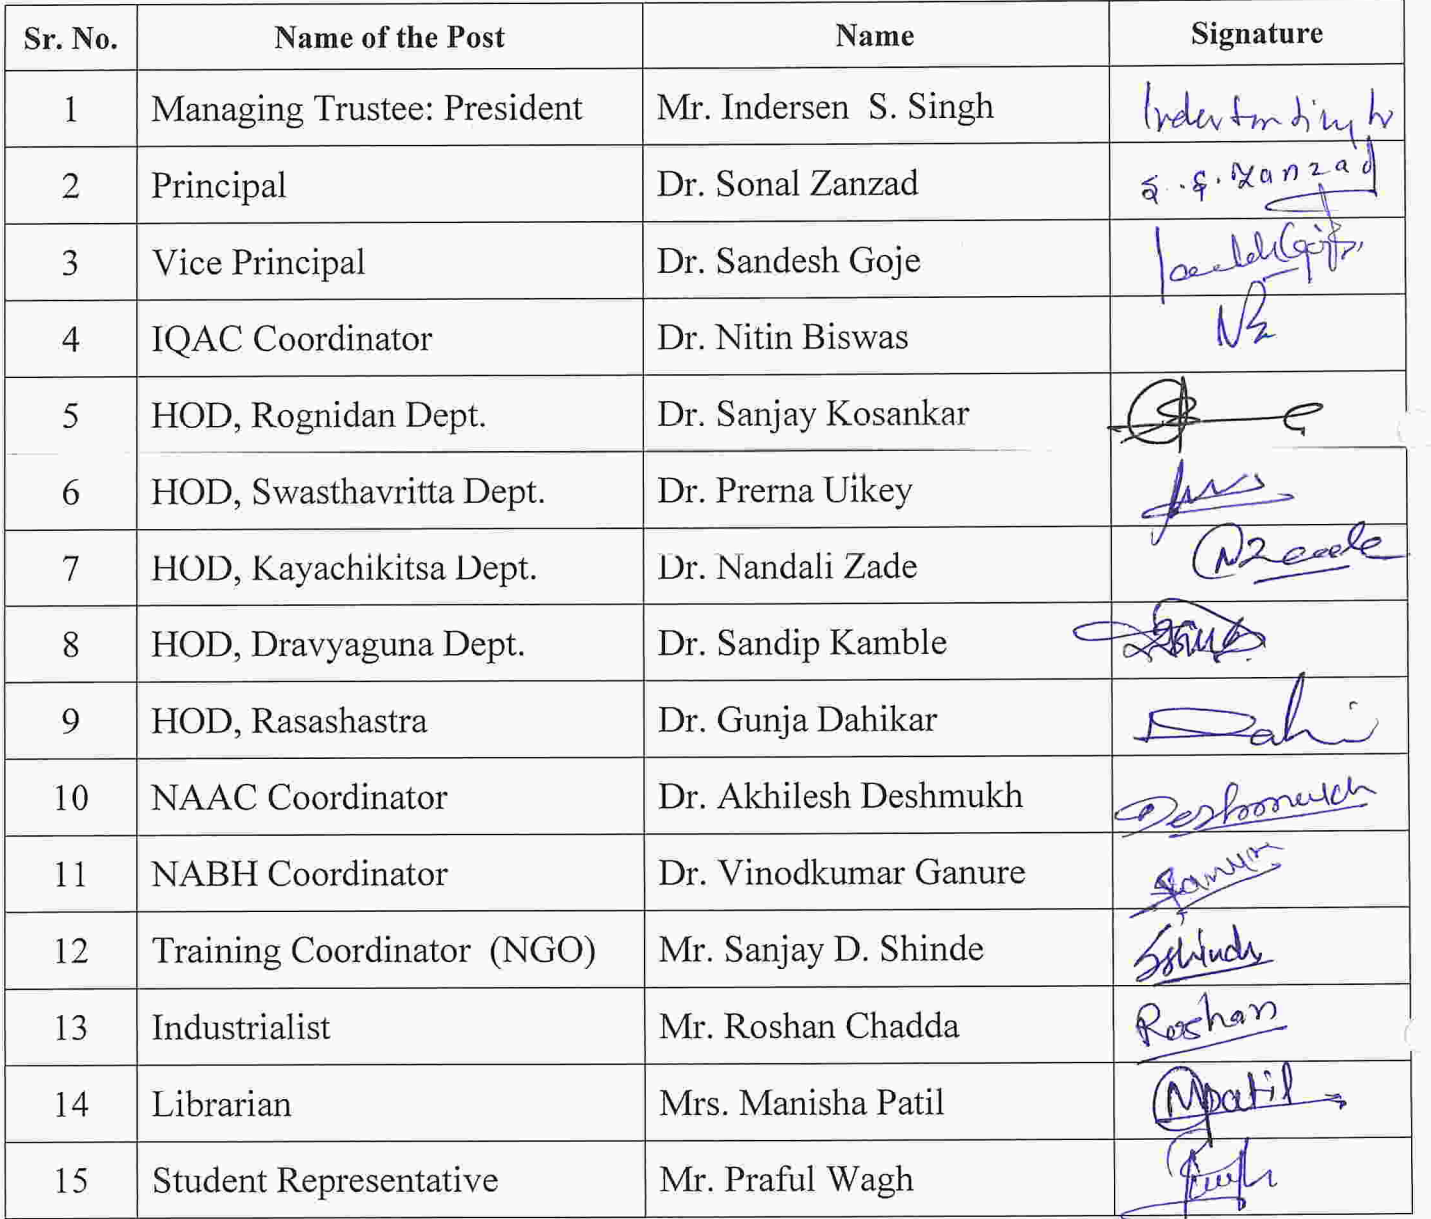 Sr. No. Name of the Post Name Signature
1 Managing Trustee: President Mr. Indersen S. Singh
2 Principal Dr. Sonal Zanzad S.S. Zanzad
3 Vice Principal Dr. Sandesh Goje
4 IQAC Coordinator Dr. Nitin Biswas
5 HOD, Rognidan Dept. Dr. Sanjay Kosankar
6 HOD, Swasthavritta Dept. Dr. Prerna Uikey
7 HOD, Kayachikitsa Dept. Dr. Nandali Zade
8 HOD, Dravyaguna Dept. Dr. Sandip Kamble
9 HOD, Rasashastra Dr. Gunja Dahikar Dahi
10 NAAC Coordinator Dr. Akhilesh Deshmukh Deshmukh
11 NABH Coordinator Dr. Vinodkumar Ganure
12 Training Coordinator (NGO) Mr. Sanjay D. Shinde SShinde
13 Industrialist Mr. Roshan Chadda Roshan
14 Librarian Mrs. Manisha Patil Mpatil
15 Student Representative Mr. Praful Wagh